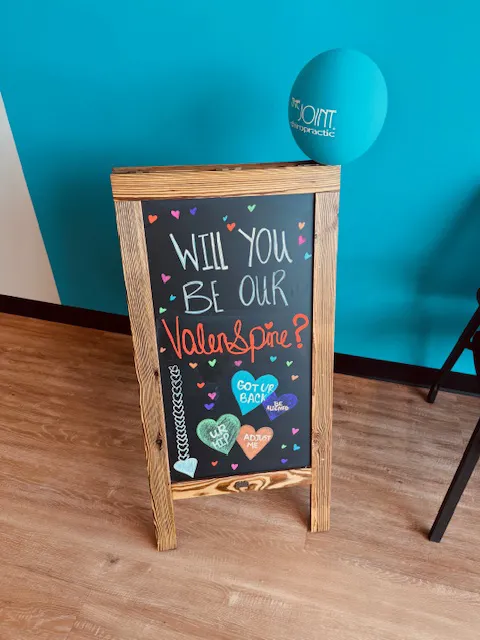 THE JOINT
chiropractic
WILL YOU
BE OUR
ValenSpine?
GOT UR
BACK
BE
ALIGNED
UR
HIP
ADJUST
ME